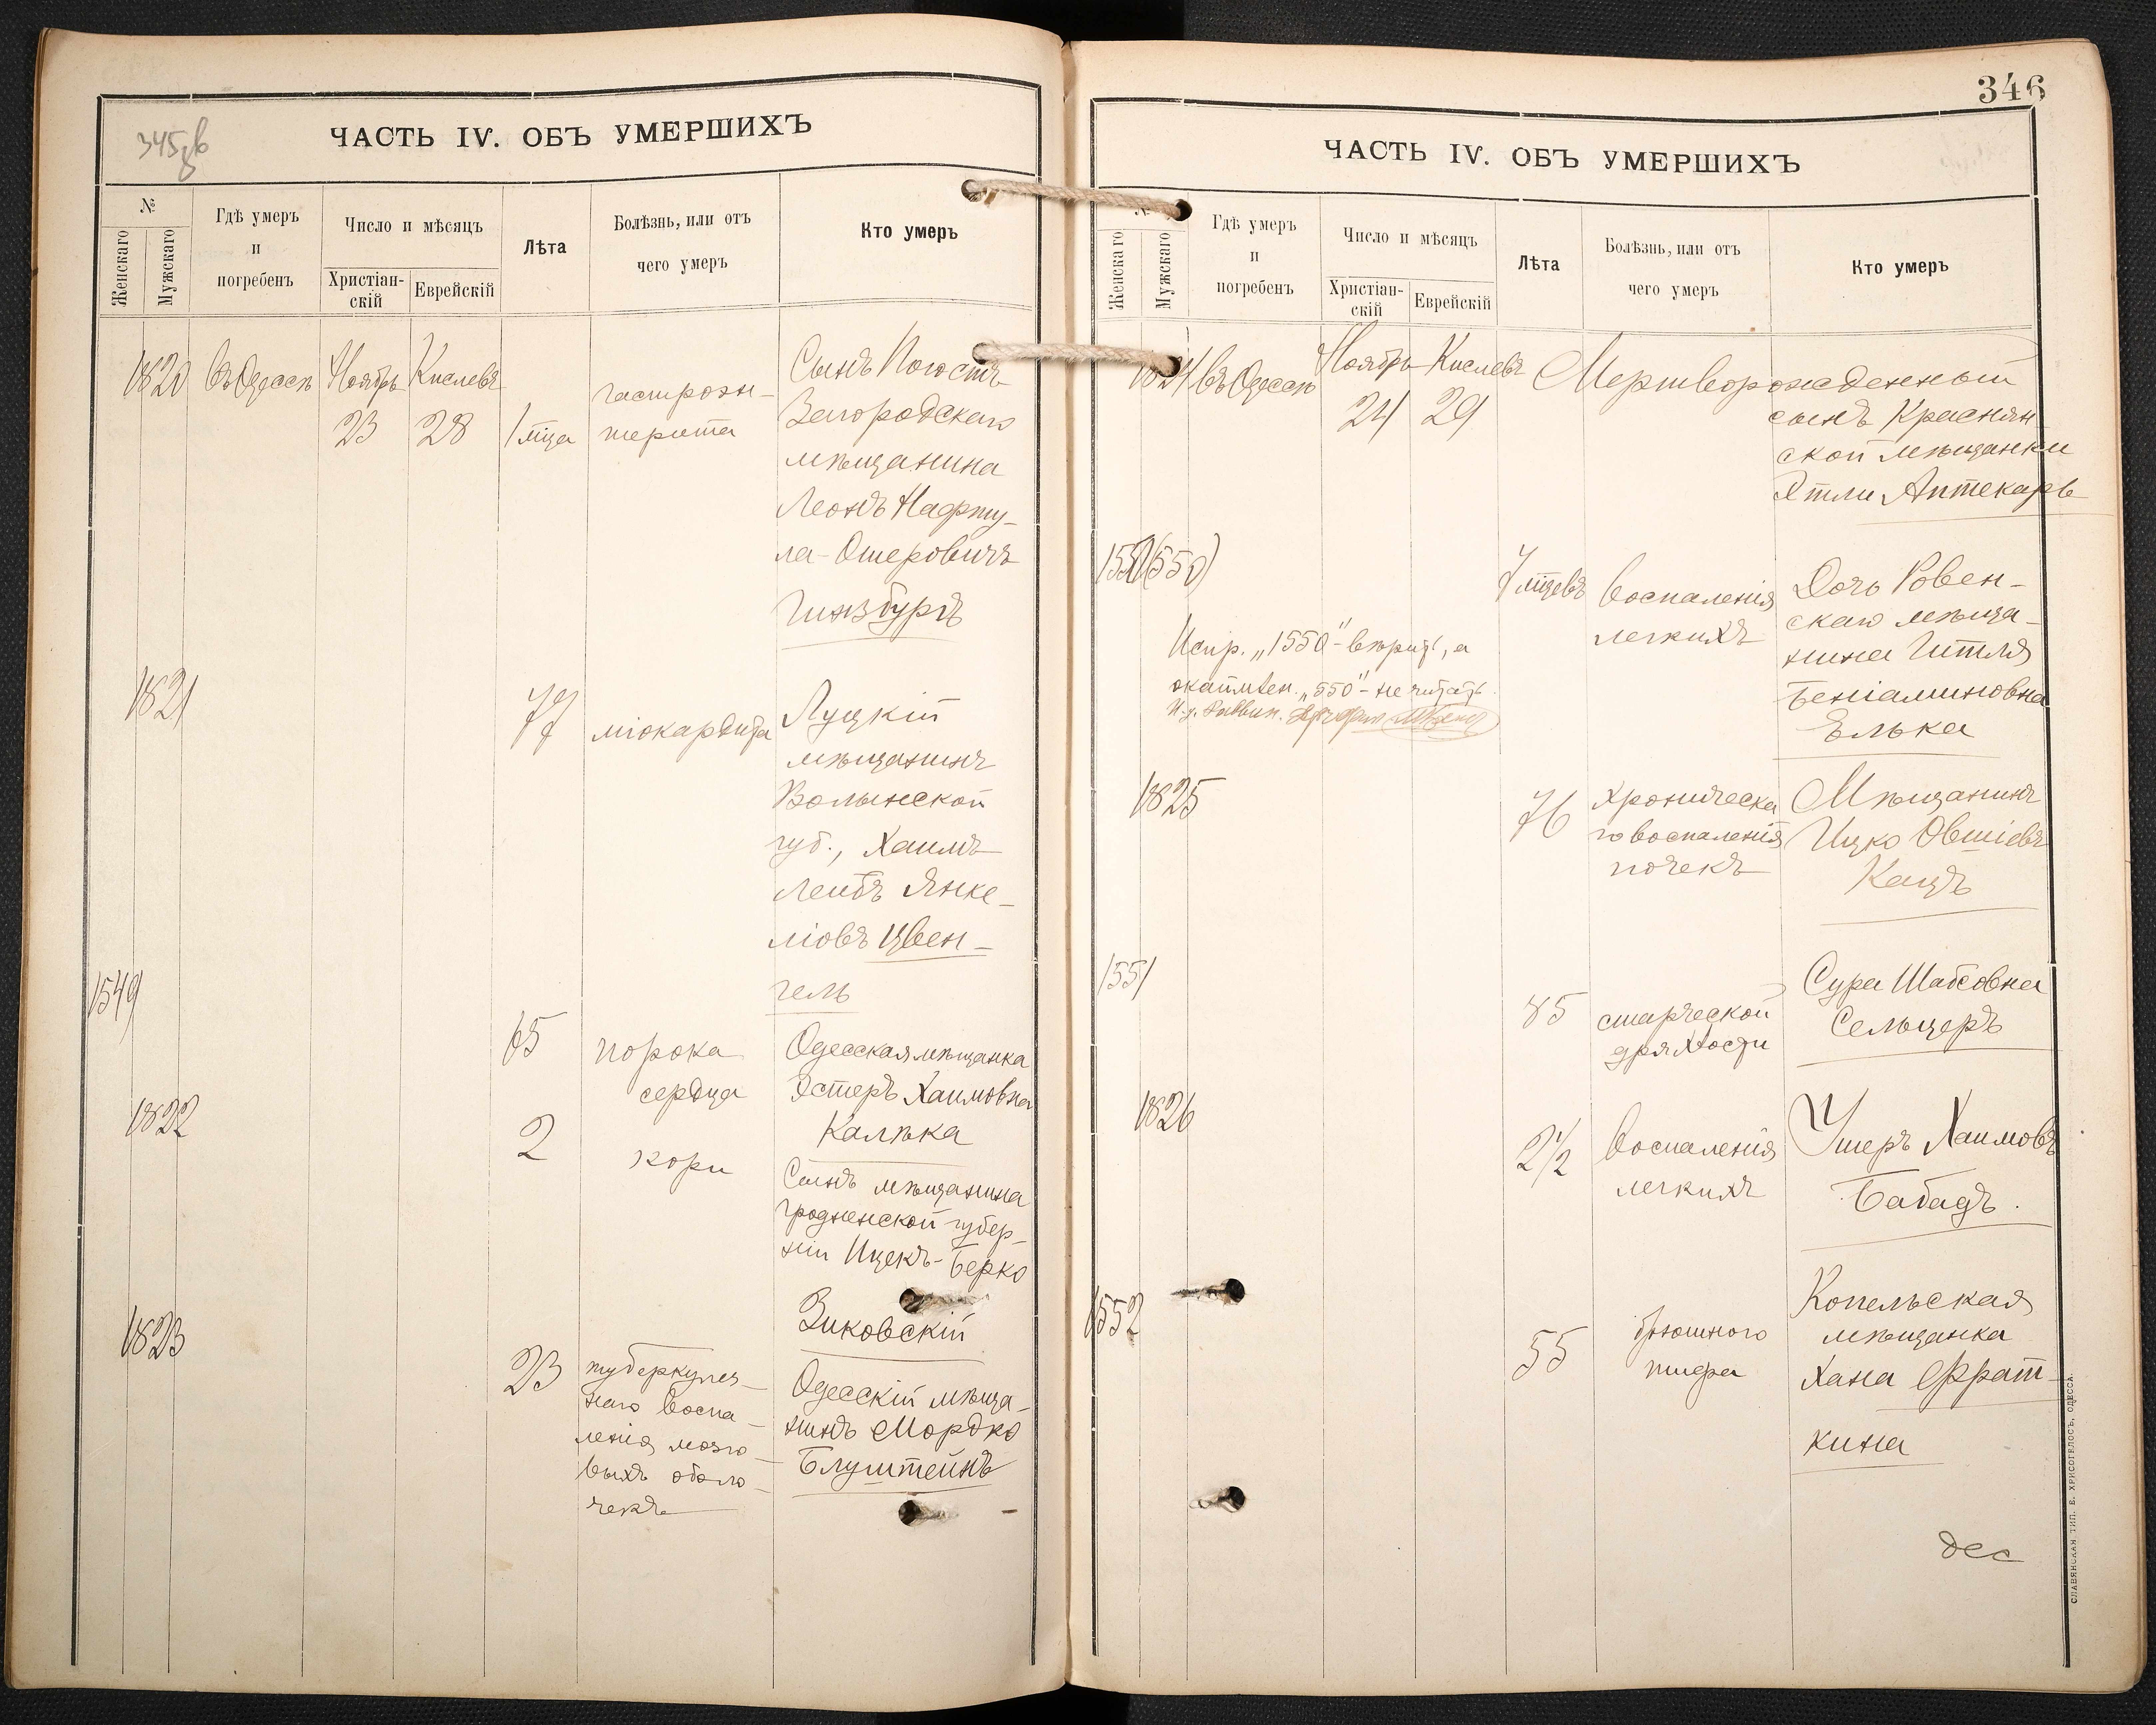 345 зв
ЧАСТЬ IV. ОБЪ УМЕРШИХЪ
№
Женскаго
Мужскаго
Гдѣ умеръ
и
погребенъ
Число и мѣсяцъ
Христіан-
скій
Еврейскій
Лѣта
Болѣзнь, или отъ
чего умеръ
Кто умеръ
1820 Въ Одессѣ Ноябрь Кислевъ
23 28 1 мца
гастроэн-
терита
Сынъ Погостъ
Загородскаго
мѣщанина
Леонъ Нафту-
ла-Ошеровичъ
Гинзбургъ
1821
77 міокардита
Луцкій
мѣщанинъ
Волынской
губ., Хаимъ
Лейбъ Янке-
ліовъ Цвен-
гель
1549
65 порока
сердца
Одесская мѣщанка
Эстеръ Хаимовна
Калѣка
1822
2 кори
Сынъ мѣщанина
Гродненской губер-
ніи Ицекъ-Берко
Зиковскій
1823
23 туберкулез-
наго воспа-
ленія мозго-
выхъ оболо-
чекъ
Одесскій мѣща-
нинъ Мордко
Блуштейнъ
346
ЧАСТЬ IV. ОБЪ УМЕРШИХЪ
№
Женскаго
Мужскаго
Гдѣ умеръ
и
погребенъ
Число и мѣсяцъ
Христіан-
скій
Еврейскій
Лѣта
Болѣзнь, или отъ
чего умеръ
Кто умеръ
1824 Въ Одессѣ Ноябрь Кислевъ
24 29
Мертворожденный
сынъ Краснян
ской мѣщанки
Этли Аптекарь
1550 (550)
7 мцевъ Воспаленія
легкихъ
Дочь Ровен-
скаго мѣща-
нина Гитля
Беніаминовна
Елька
Испр. „1550" - вѣрить, а
окаймлен. „550" - не читать.
И. д. Раввин.
1825
76 хроническа
го воспаленія
почекъ
Мѣщанинъ
Ицко Овшіевъ
Кацъ
1551
85 старческой
дряхлости
Сура Шабсовна
Сельцеръ
1826
2 1/2 Воспаленія
легкихъ
Ушеръ Хаимовъ
Бабадъ.
1552
55 брюшного
тифа
Копельская
мѣщанка
Хана Эфрат-
кина
дес
СЛАВЯНСКАЯ ТИП. Е. ХРИСОГЕЛОСЪ, ОДЕССА.